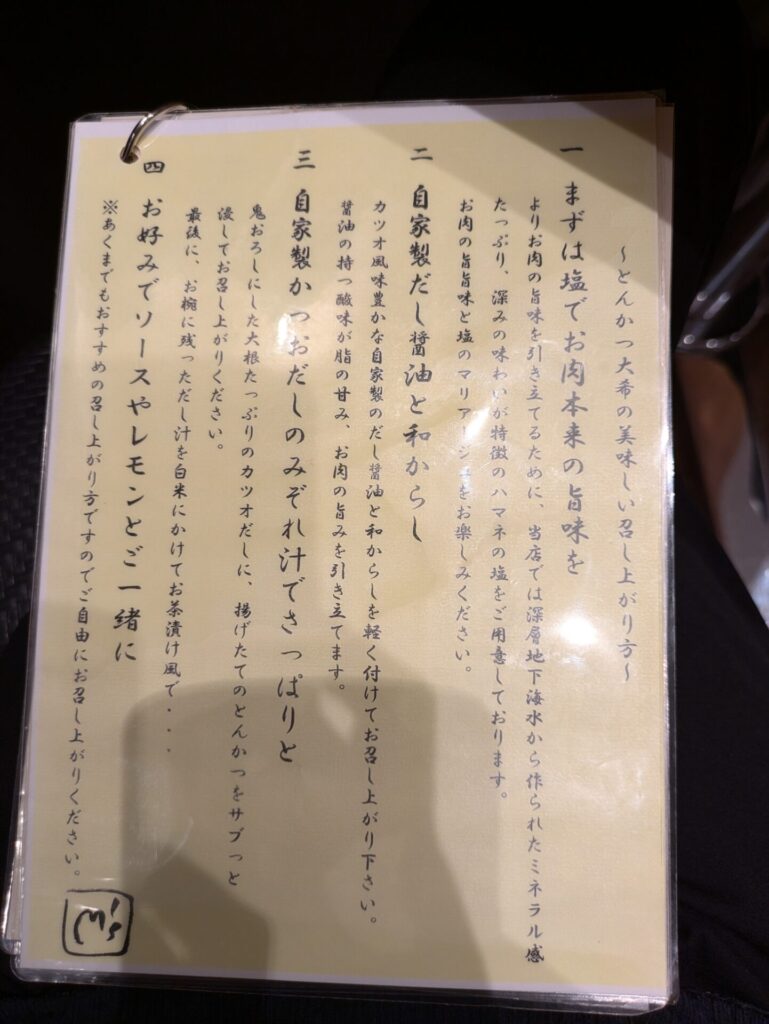 ～とんかつ大希の美味しい召し上がり方～
一 まずは塩でお肉本来の旨味を
よりお肉の旨味を引き立てるために、当店では深層地下海水から作られたミネラル感
たっぷり、深みの味わいが特徴のハマネの塩をご用意しております。
お肉の旨旨味と塩のマリアージュをお楽しみください。
二 自家製だし醤油と和からし
カツオ風味豊かな自家製のだし醤油と和からしを軽く付けてお召し上がり下さい。
醤油の持つ酸味が脂の甘み、お肉の旨みを引き立てます。
三 自家製かつおだしのみぞれ汁でさっぱりと
鬼おろしにした大根たっぷりのカツオだしに、揚げたてのとんかつをサブっと
浸してお召し上がりください。
最後に、お椀に残っただし汁を白米にかけてお茶漬け風で・・・
四 お好みでソースやレモンとご一緒に
※あくまでもおすすめの召し上がり方ですのでご自由にお召し上がりください。
M's